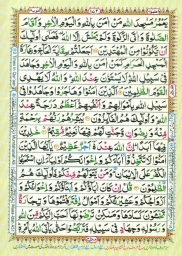 يَعْمُرُ مَسٰجِدَ اللّٰهِ مَنْ اٰمَنَ بِاللّٰهِ وَالْيَوْمِ الْاٰخِرِ وَاَقَامَ
الصَّلٰوةَ وَاٰتَى الزَّكٰوةَ وَلَمْ يَخْشَ اِلَّا اللّٰهَ فَعَسٰٓى اُولٰٓئِكَ
اَنْ يَّكُوْنُوْا مِنَ الْمُهْتَدِيْنَ اَجَعَلْتُمْ سِقَايَةَ الْحَآجِّ وَعِمَارَةَ
الْمَسْجِدِ الْحَرَامِ كَمَنْ اٰمَنَ بِاللّٰهِ وَالْيَوْمِ الْاٰخِرِ وَجٰهَدَ
فِيْ سَبِيْلِ اللّٰهِ لَا يَسْتَوٗنَ عِنْدَ اللّٰهِ وَاللّٰهُ لَا يَهْدِي
الْقَوْمَ الظّٰلِمِيْنَ الَّذِيْنَ اٰمَنُوْا وَهَاجَرُوْا وَجَاهَدُوْا
فِيْ سَبِيْلِ اللّٰهِ بِاَمْوَالِهِمْ وَاَنْفُسِهِمْ اَعْظَمُ دَرَجَةً عِنْدَ
اللّٰهِ وَاُولٰٓئِكَ هُمُ الْفَآئِزُوْنَ يُبَشِّرُهُمْ رَبُّهُمْ بِرَحْمَةٍ
مِّنْهُ وَرِضْوَانٍ وَّجَنّٰتٍ لَّهُمْ فِيْهَا نَعِيْمٌ مُّقِيْمٌ خٰلِدِيْنَ
فِيْهَآ اَبَدًا اِنَّ اللّٰهَ عِنْدَهٗٓ اَجْرٌ عَظِيْمٌ يٰٓاَيُّهَا الَّذِيْنَ
اٰمَنُوْا لَا تَتَّخِذُوْٓا اٰبَآءَكُمْ وَاِخْوَانَكُمْ اَوْلِيَآءَ اِنِ اسْتَحَبُّوا
الْكُفْرَ عَلَى الْاِيْمَانِ وَمَنْ يَّتَوَلَّهُمْ مِّنْكُمْ فَاُولٰٓئِكَ هُمُ
الظّٰلِمُوْنَ قُلْ اِنْ كَانَ اٰبَآؤُكُمْ وَاَبْنَآؤُكُمْ وَاِخْوَانُكُمْ
وَاَزْوَاجُكُمْ وَعَشِيْرَتُكُمْ وَاَمْوَالُ اقْتَرَفْتُمُوْهَا وَتِجَارَةٌ
تَخْشَوْنَ كَسَادَهَا وَمَسٰكِنُ تَرْضَوْنَهَآ اَحَبَّ اِلَيْكُمْ مِّنَ اللّٰهِ
وَرَسُوْلِهٖ وَجِهَادٍ فِيْ سَبِيْلِهٖ فَتَرَبَّصُوْا حَتّٰى يَاْتِيَ اللّٰهُ